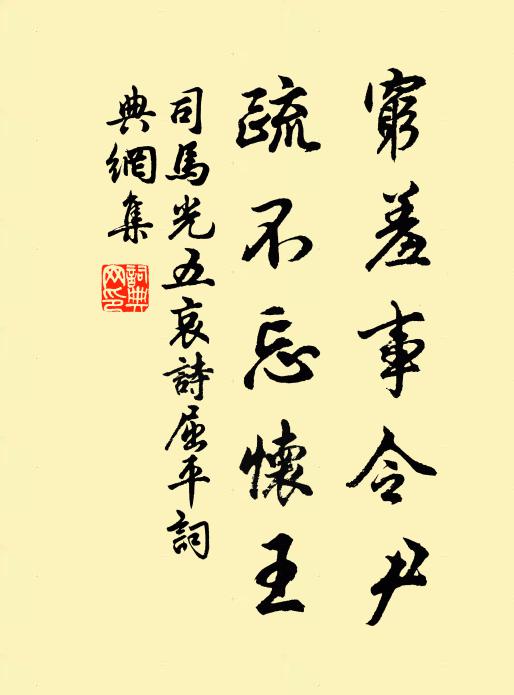 窮羞事令尹
疏不忘懷王
司馬光五哀詩屈平詞
典網集
詞典
网印